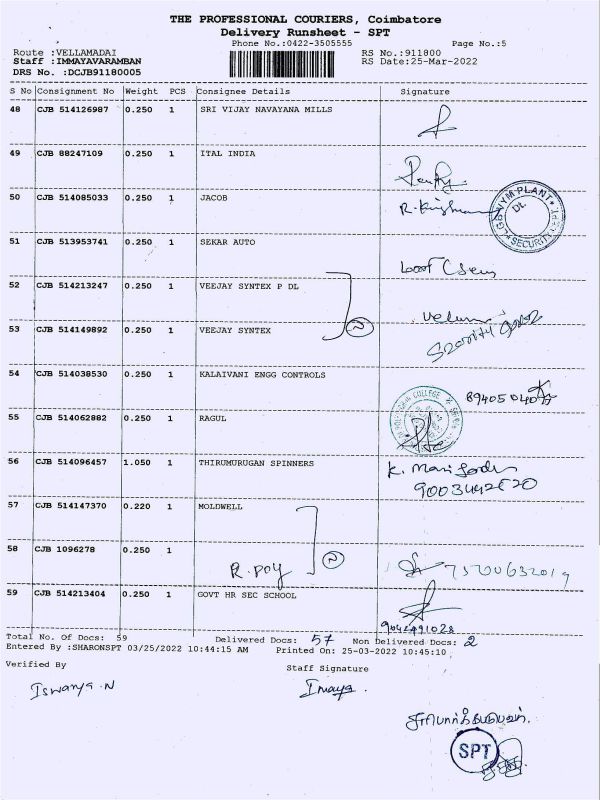 THE PROFESSIONAL COURIERS, Coimbatore
Delivery Runsheet - SPT
Phone No.:0422-3505555 Page No.:5
Route :VELLAMADAI RS No.:911800
Staff :IMMAYAVARAMBAN RS Date:25-Mar-2022
DRS No. :DCJB91180005
S No Consignment No Weight PCS Consignee Details Signature
48 CJB 514126987 0.250 1 SRI VIJAY NAVAYANA MILLS
49 CJB 88247109 0.250 1 ITAL INDIA
50 CJB 514085033 0.250 1 JACOB
PLANT
SECURITY
51 CJB 513953741 0.250 1 SEKAR AUTO
52 CJB 514213247 0.250 1 VEEJAY SYNTEX P DL
53 CJB 514149892 0.250 1 VEEJAY SYNTEX
54 CJB 514038530 0.250 1 KALAIVANI ENGG CONTROLS
COLLEGE
55 CJB 514062882 0.250 1 RAGUL
56 CJB 514096457 1.050 1 THIRUMURUGAN SPINNERS
K. Mari
57 CJB 514147370 0.220 1 MOLDWELL
58 CJB 1096278 0.250 1
R. POY
59 CJB 514213404 0.250 1 GOVT HR SEC SCHOOL
9042491028
Total No. Of Docs: 59 Delivered Docs: 57 Non Delivered Docs: 2
Entered By :SHARONSPT 03/25/2022 10:44:15 AM Printed On: 25-03-2022 10:45:10
Verified By Staff Signature
Iswarya .N Imaya.
SPT